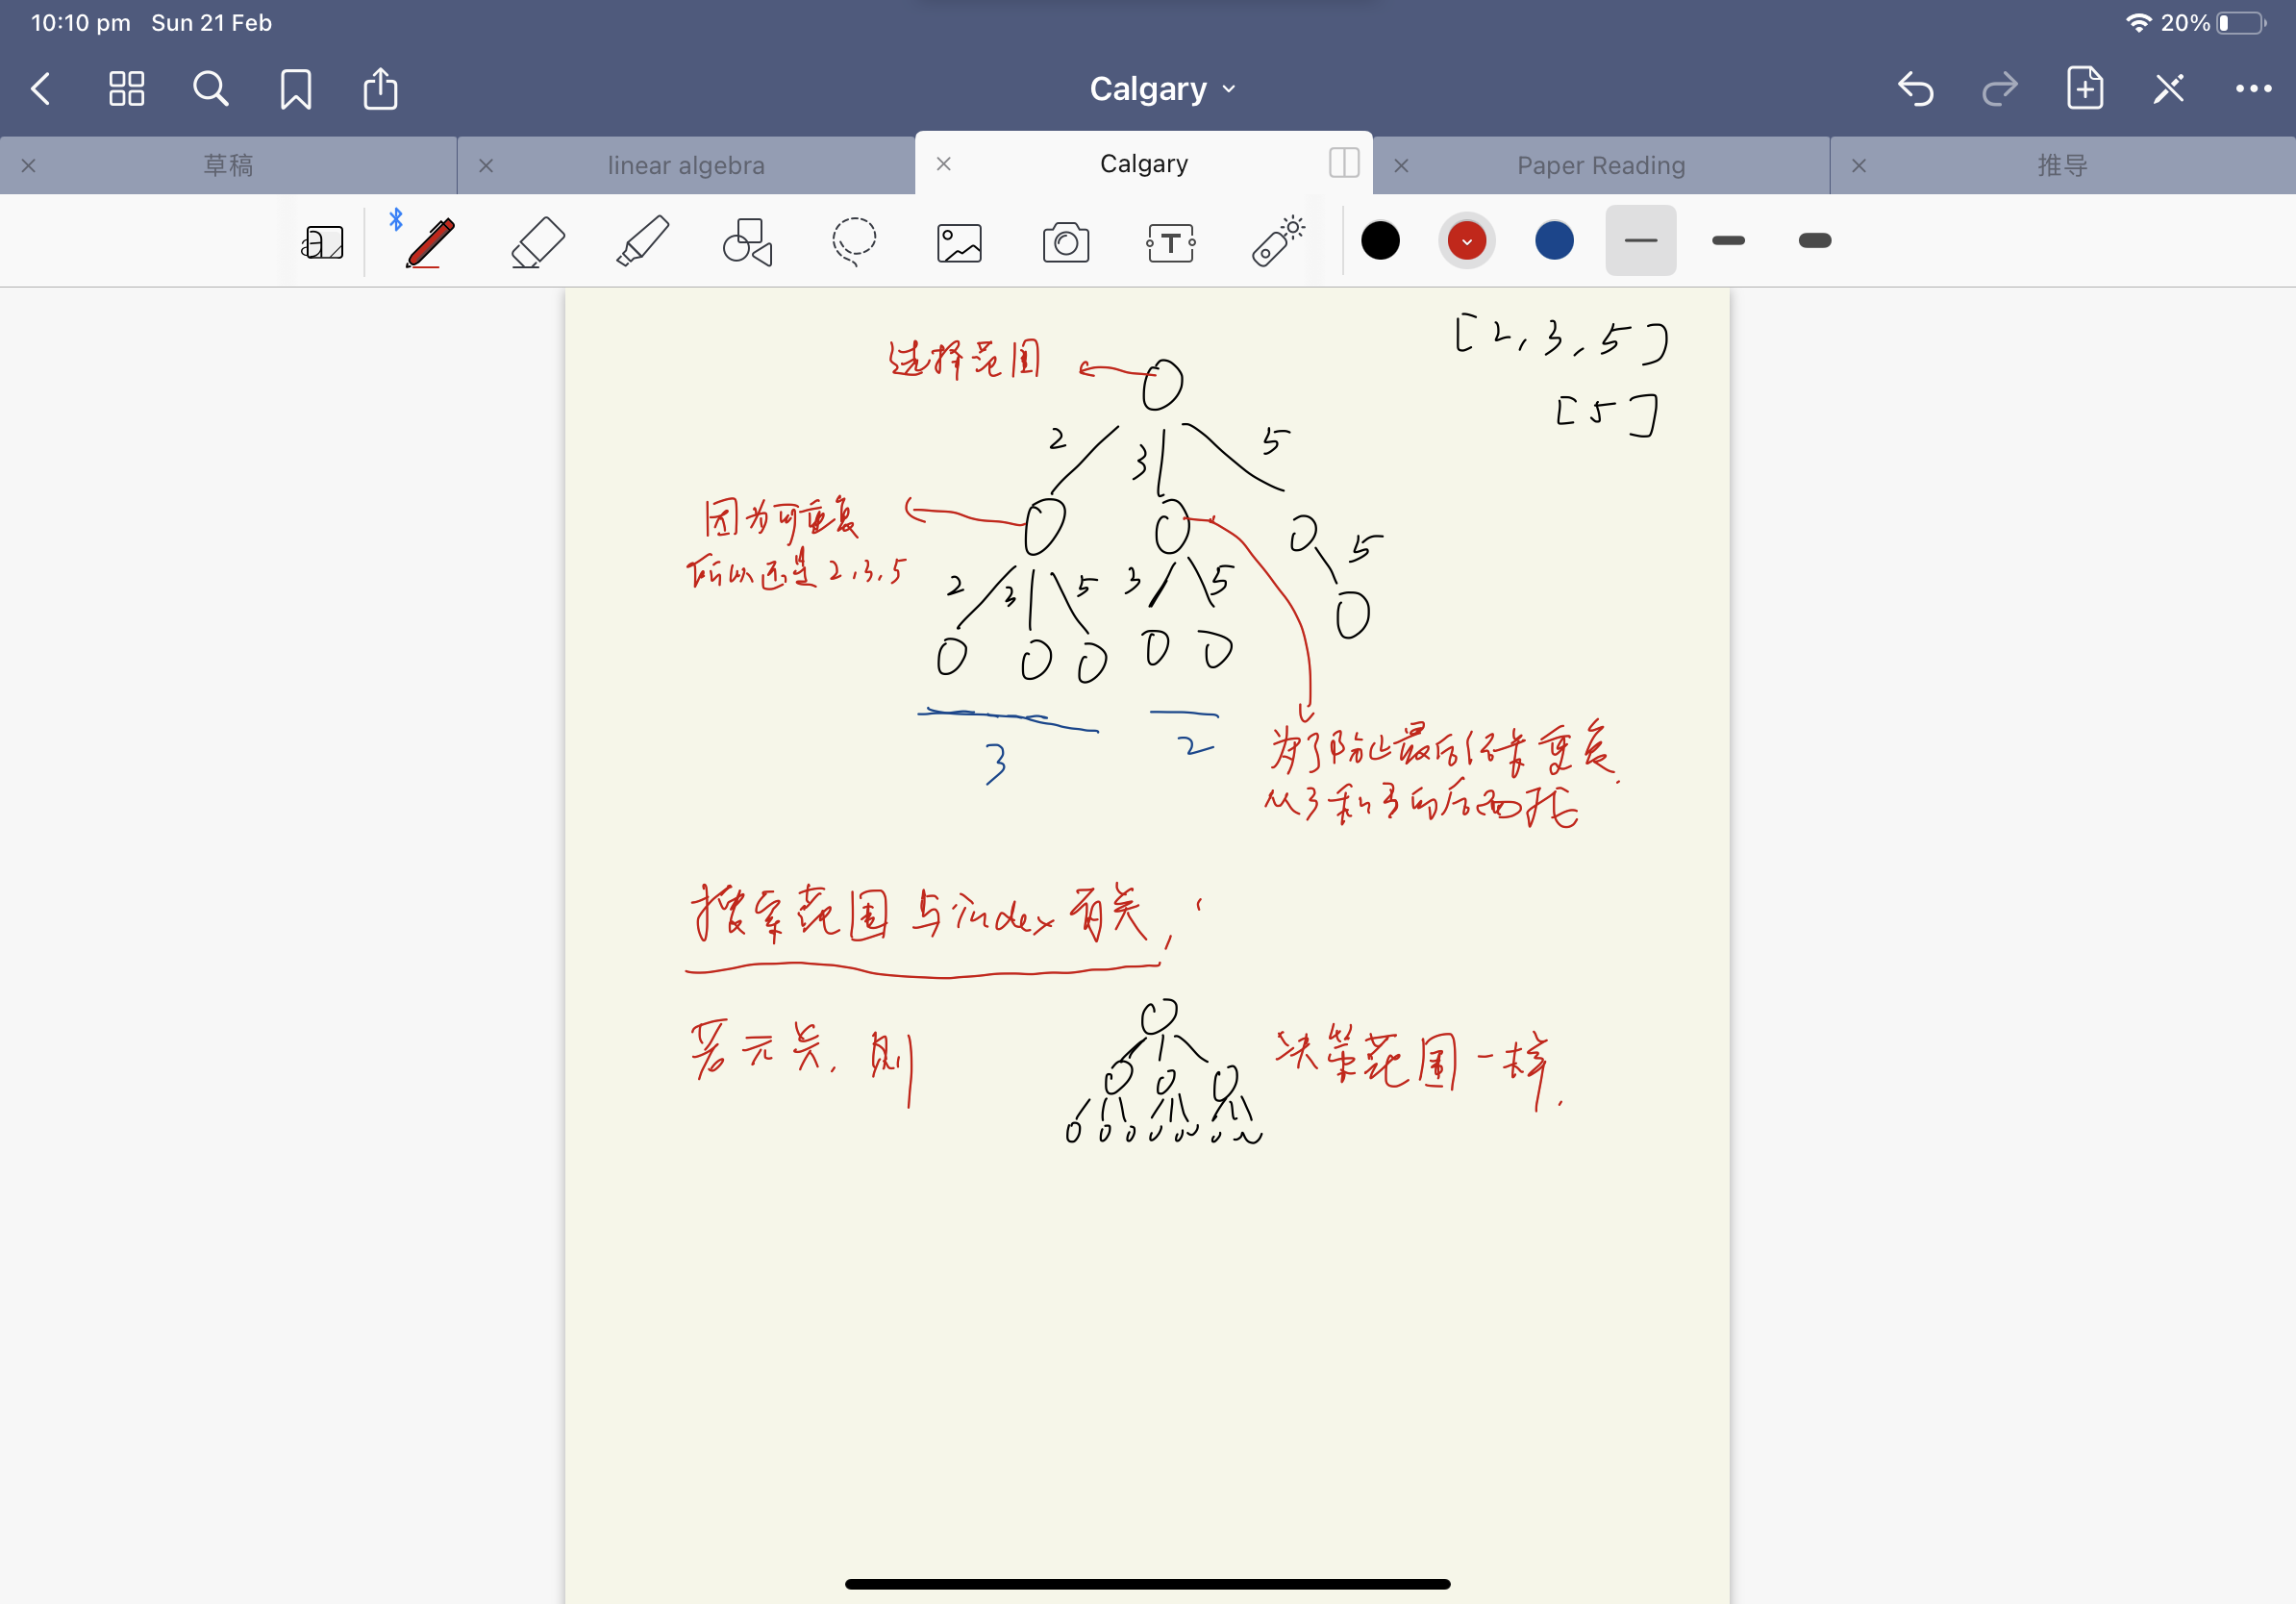 10:10 pm Sun 21 Feb 20%
Calgary
草稿 linear algebra Calgary Paper Reading 推导
T
[2,3,5]
选择范围
[5]
2 3 5
因为可重复
所以还是2,3,5
5
2 3 5 3 5
3 2
为了防止最后结果重复.
从3和3的后面找
搜索范围与index有关,
若无关,则 决策范围一样.